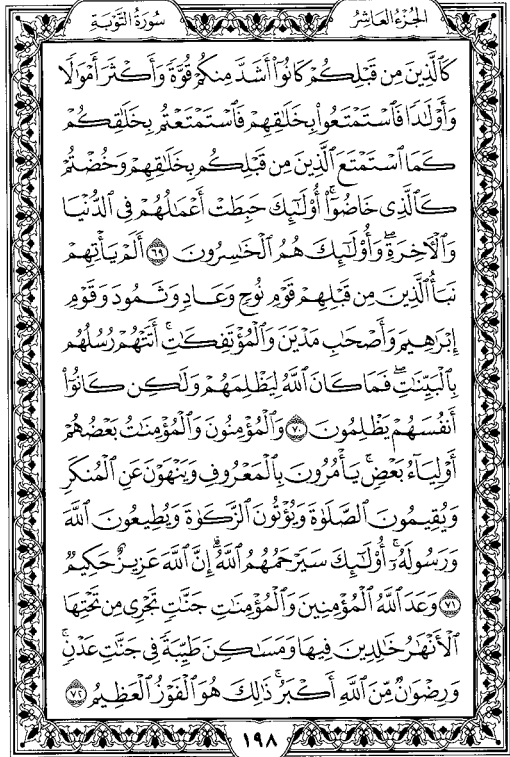 الجُزْءُ العَاشِرُ
سُورَةُ التَّوْبَةِ
كَالَّذِينَ مِن قَبْلِكُمْ كَانُوٓا۟ أَشَدَّ مِنكُمْ قُوَّةً وَأَكْثَرَ أَمْوَٰلًا
وَأَوْلَٰدًا فَٱسْتَمْتَعُوا۟ بِخَلَٰقِهِمْ فَٱسْتَمْتَعْتُم بِخَلَٰقِكُمْ
كَمَا ٱسْتَمْتَعَ ٱلَّذِينَ مِن قَبْلِكُم بِخَلَٰقِهِمْ وَخُضْتُمْ
كَٱلَّذِى خَاضُوٓا۟ۚ أُو۟لَٰٓئِكَ حَبِطَتْ أَعْمَٰلُهُمْ فِى ٱلدُّنْيَا
وَٱلْءَاخِرَةِۖ وَأُو۟لَٰٓئِكَ هُمُ ٱلْخَٰسِرُونَ ٦٩ أَلَمْ يَأْتِهِمْ
نَبَأُ ٱلَّذِينَ مِن قَبْلِهِمْ قَوْمِ نُوحٍ وَعَادٍ وَثَمُودَ وَقَوْمِ
إِبْرَٰهِيمَ وَأَصْحَٰبِ مَدْيَنَ وَٱلْمُؤْتَفِكَٰتِۚ أَتَتْهُمْ رُسُلُهُم
بِٱلْبَيِّنَٰتِۖ فَمَا كَانَ ٱللَّهُ لِيَظْلِمَهُمْ وَلَٰكِن كَانُوٓا۟
أَنفُسَهُمْ يَظْلِمُونَ ٧٠ وَٱلْمُؤْمِنُونَ وَٱلْمُؤْمِنَٰتُ بَعْضُهُمْ
أَوْلِيَآءُ بَعْضٍۚ يَأْمُرُونَ بِٱلْمَعْرُوفِ وَيَنْهَوْنَ عَنِ ٱلْمُنكَرِ
وَيُقِيمُونَ ٱلصَّلَوٰةَ وَيُؤْتُونَ ٱلزَّكَوٰةَ وَيُطِيعُونَ ٱللَّهَ
وَرَسُولَهُۥٓۚ أُو۟لَٰٓئِكَ سَيَرْحَمُهُمُ ٱللَّهُۗ إِنَّ ٱللَّهَ عَزِيزٌ حَكِيمٌ
٧١ وَعَدَ ٱللَّهُ ٱلْمُؤْمِنِينَ وَٱلْمُؤْمِنَٰتِ جَنَّٰتٍ تَجْرِى مِن تَحْتِهَا
ٱلْأَنْهَٰرُ خَٰلِدِينَ فِيهَا وَمَسَٰكِنَ طَيِّبَةً فِى جَنَّٰتِ عَدْنٍۚ
وَرِضْوَٰنٌ مِّنَ ٱللَّهِ أَكْبَرُۚ ذَٰلِكَ هُوَ ٱلْفَوْزُ ٱلْعَظِيمُ ٧٢
١٩٨